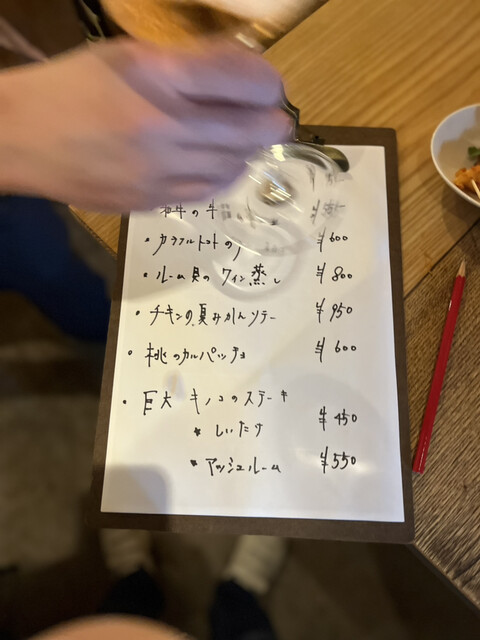 和牛の牛
・カラフルトマトの ¥600
・ムール貝のワイン蒸し ¥800
・チキンの夏みかんソテー ¥950
・桃のカルパッチョ ¥600
・巨大キノコのステーキ
* しいたけ ¥450
* マッシュルーム ¥550